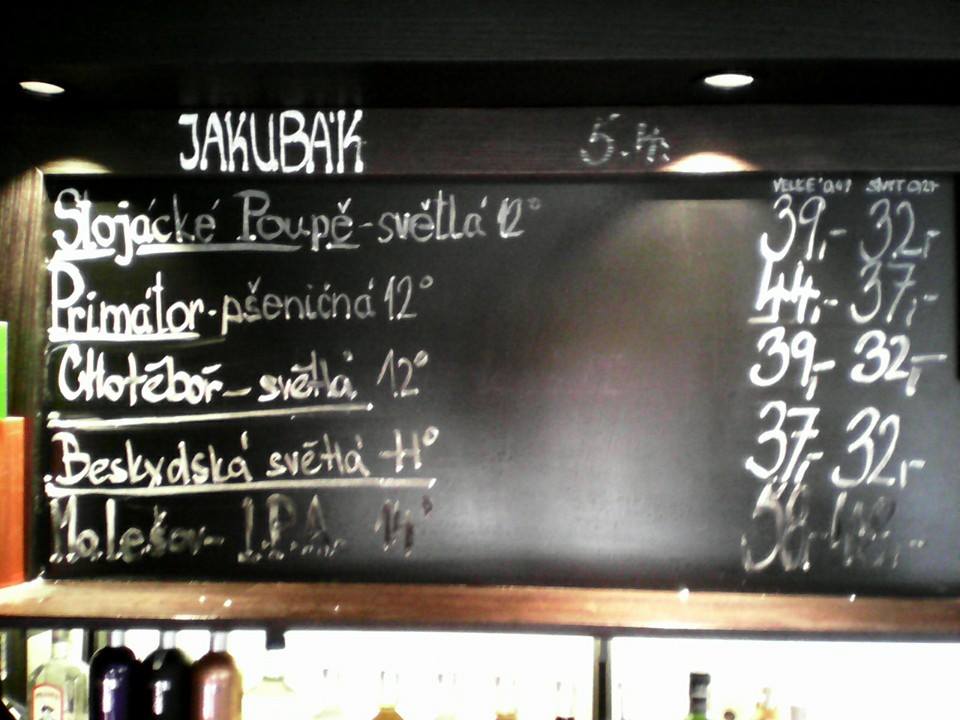 JAKUBÁK 5.4.
VELKÉ 0,4l
Stojácké Poupě - světlá 12° 39,- 32,-
Primátor - pšeničná 12° 44,- 37,-
CHotěboř - světlá 12° 39,- 32,-
Beskydská světlá 11° 37,- 32,-
I.P.A. 14° 58,- 48,-